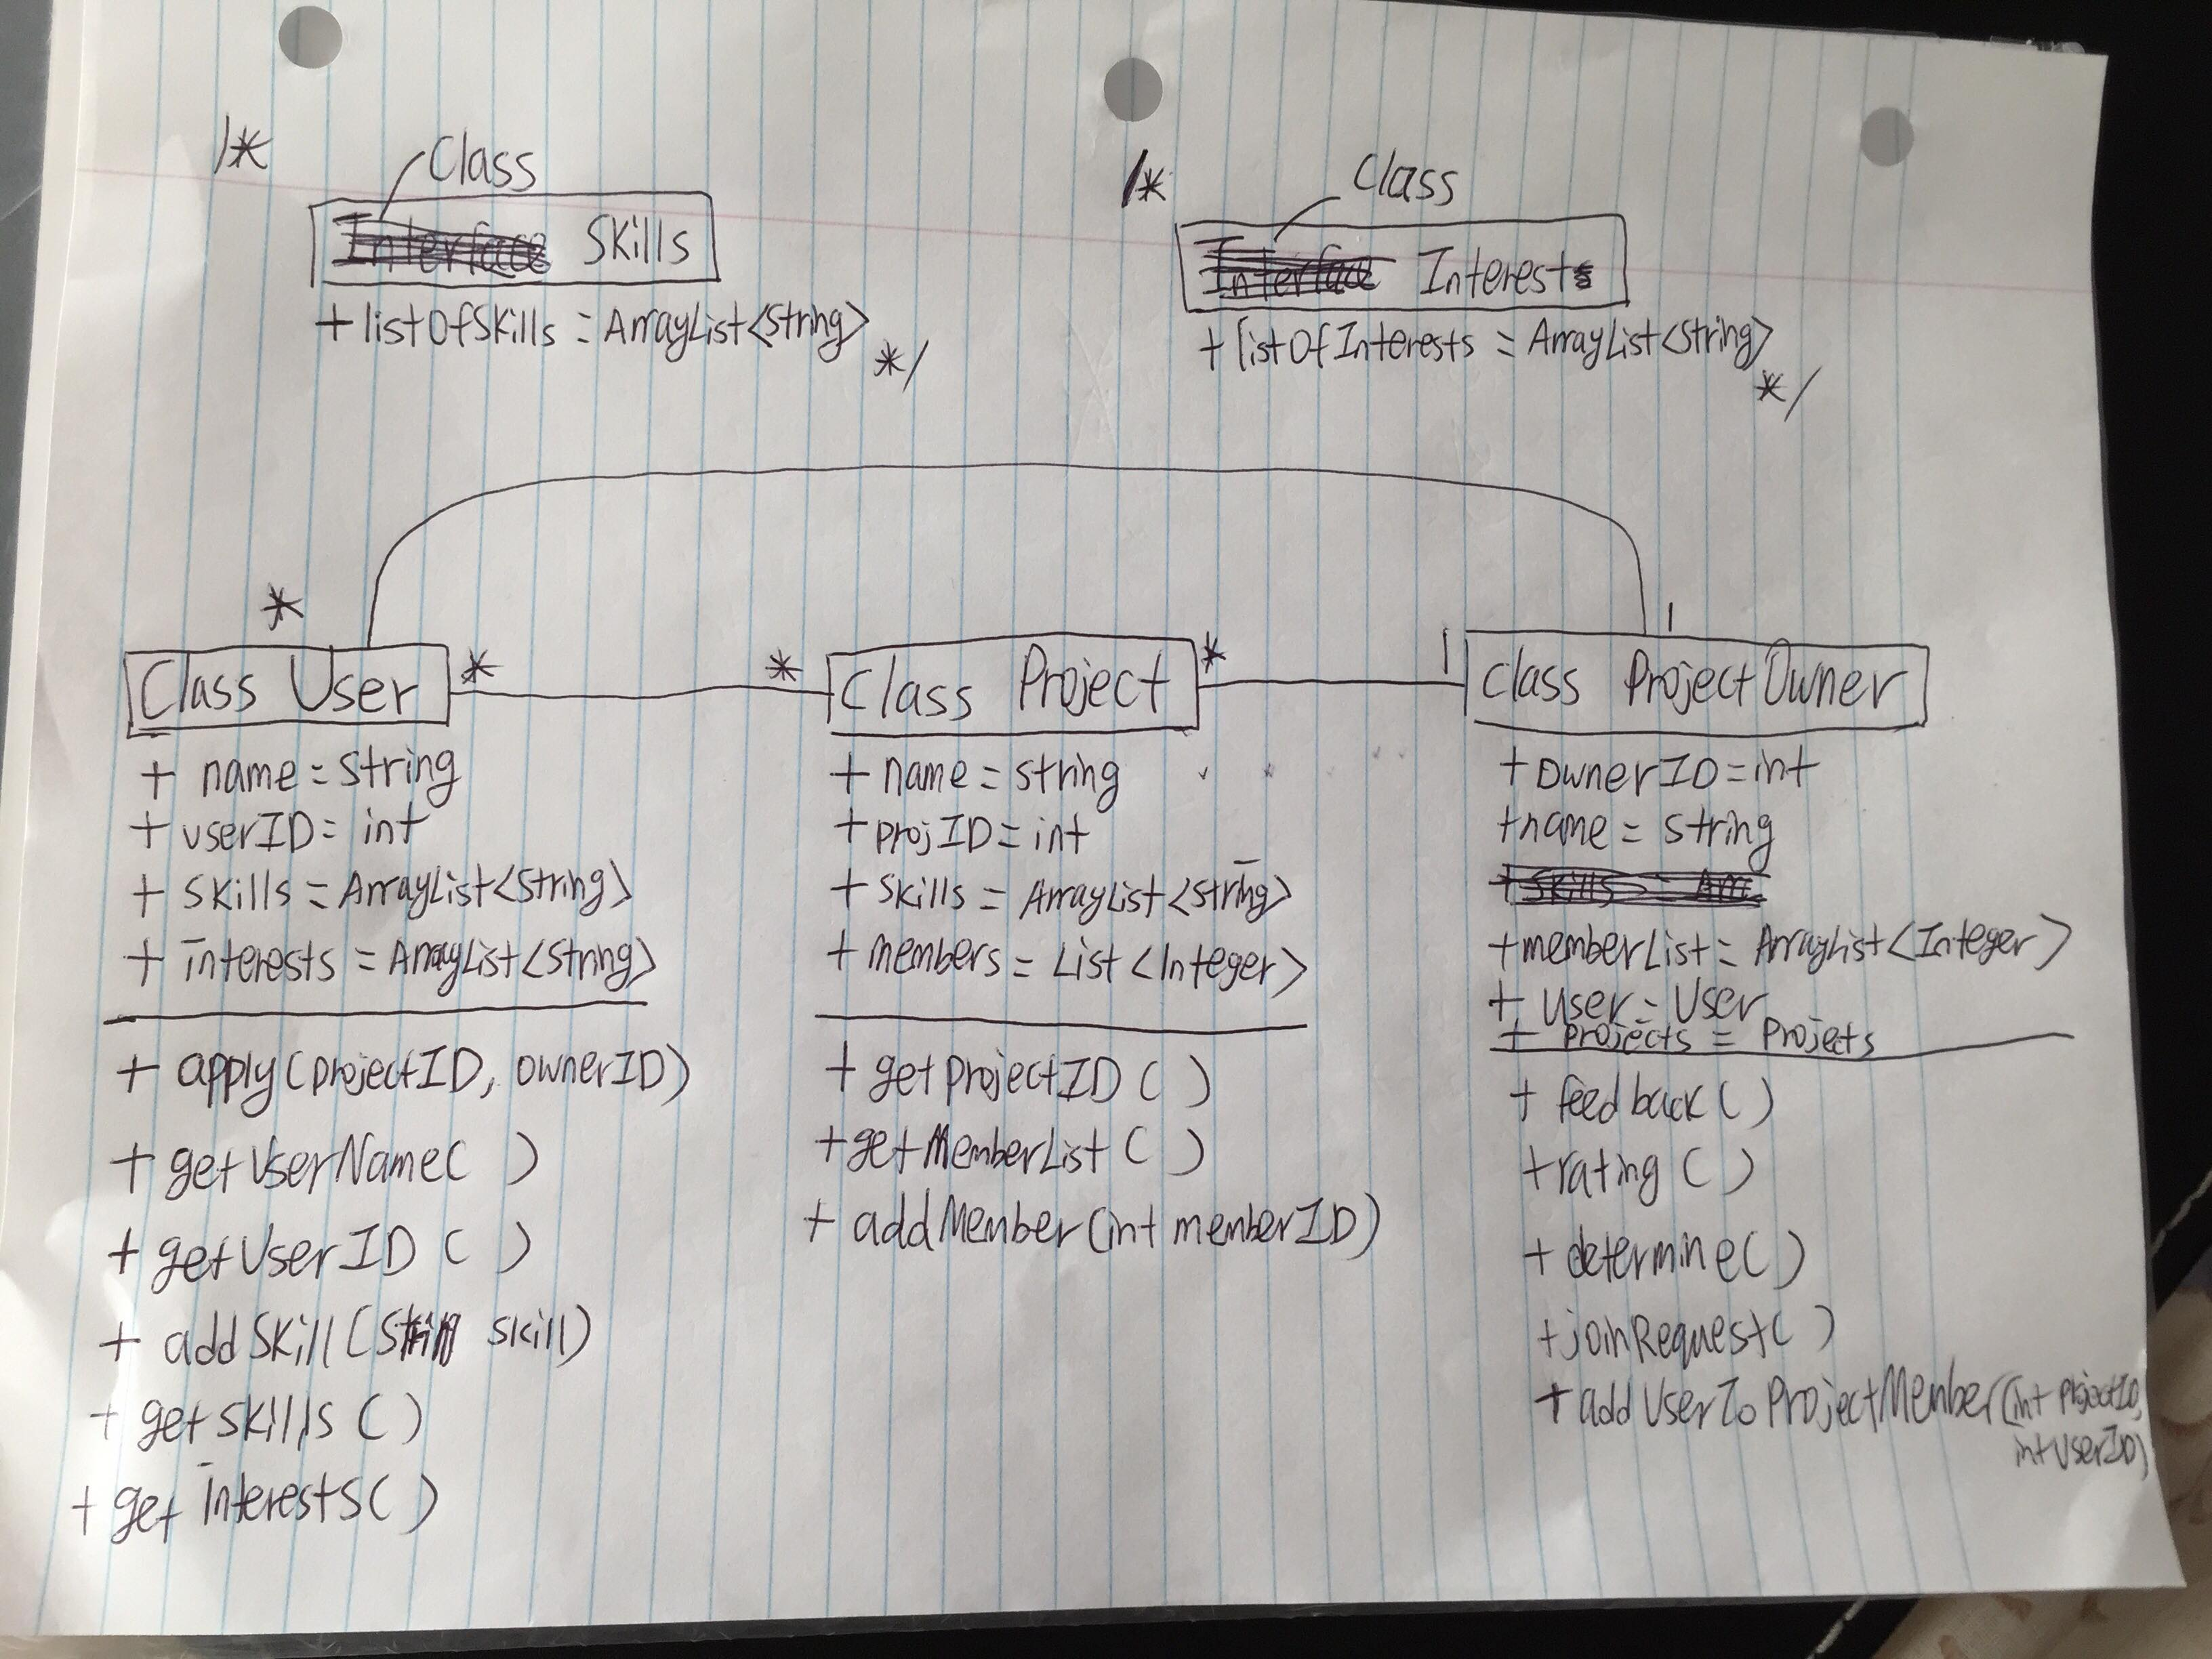 /* Class
Skills
+ listOfSkills = ArrayList<String>
*/
/* Class
Interests
+ listOfInterests = ArrayList<String>
*/
*
Class User
*
+ name = string
+ userID = int
+ Skills = ArrayList<String>
+ interests = ArrayList<String>
+ apply(projectID, ownerID)
+ getUserName( )
+ getUserID ( )
+ addSkill( skill)
+ getSkills ( )
+ getInterests( )
*
Class Project
*
+ name = string
+ projID = int
+ Skills = ArrayList<String>
+ members = List<Integer>
+ getProjectID ( )
+ getMemberList ( )
+ addMember(int memberID)
1
1
class ProjectOwner
+ ownerID = int
+ name = string
+ memberList = ArrayList<Integer>
+ User = User
+ Projects = Projects
+ feedback( )
+ rating ( )
+ determine( )
+ joinRequest( )
+ addUserToProjectMember(int projectID,
int userID)